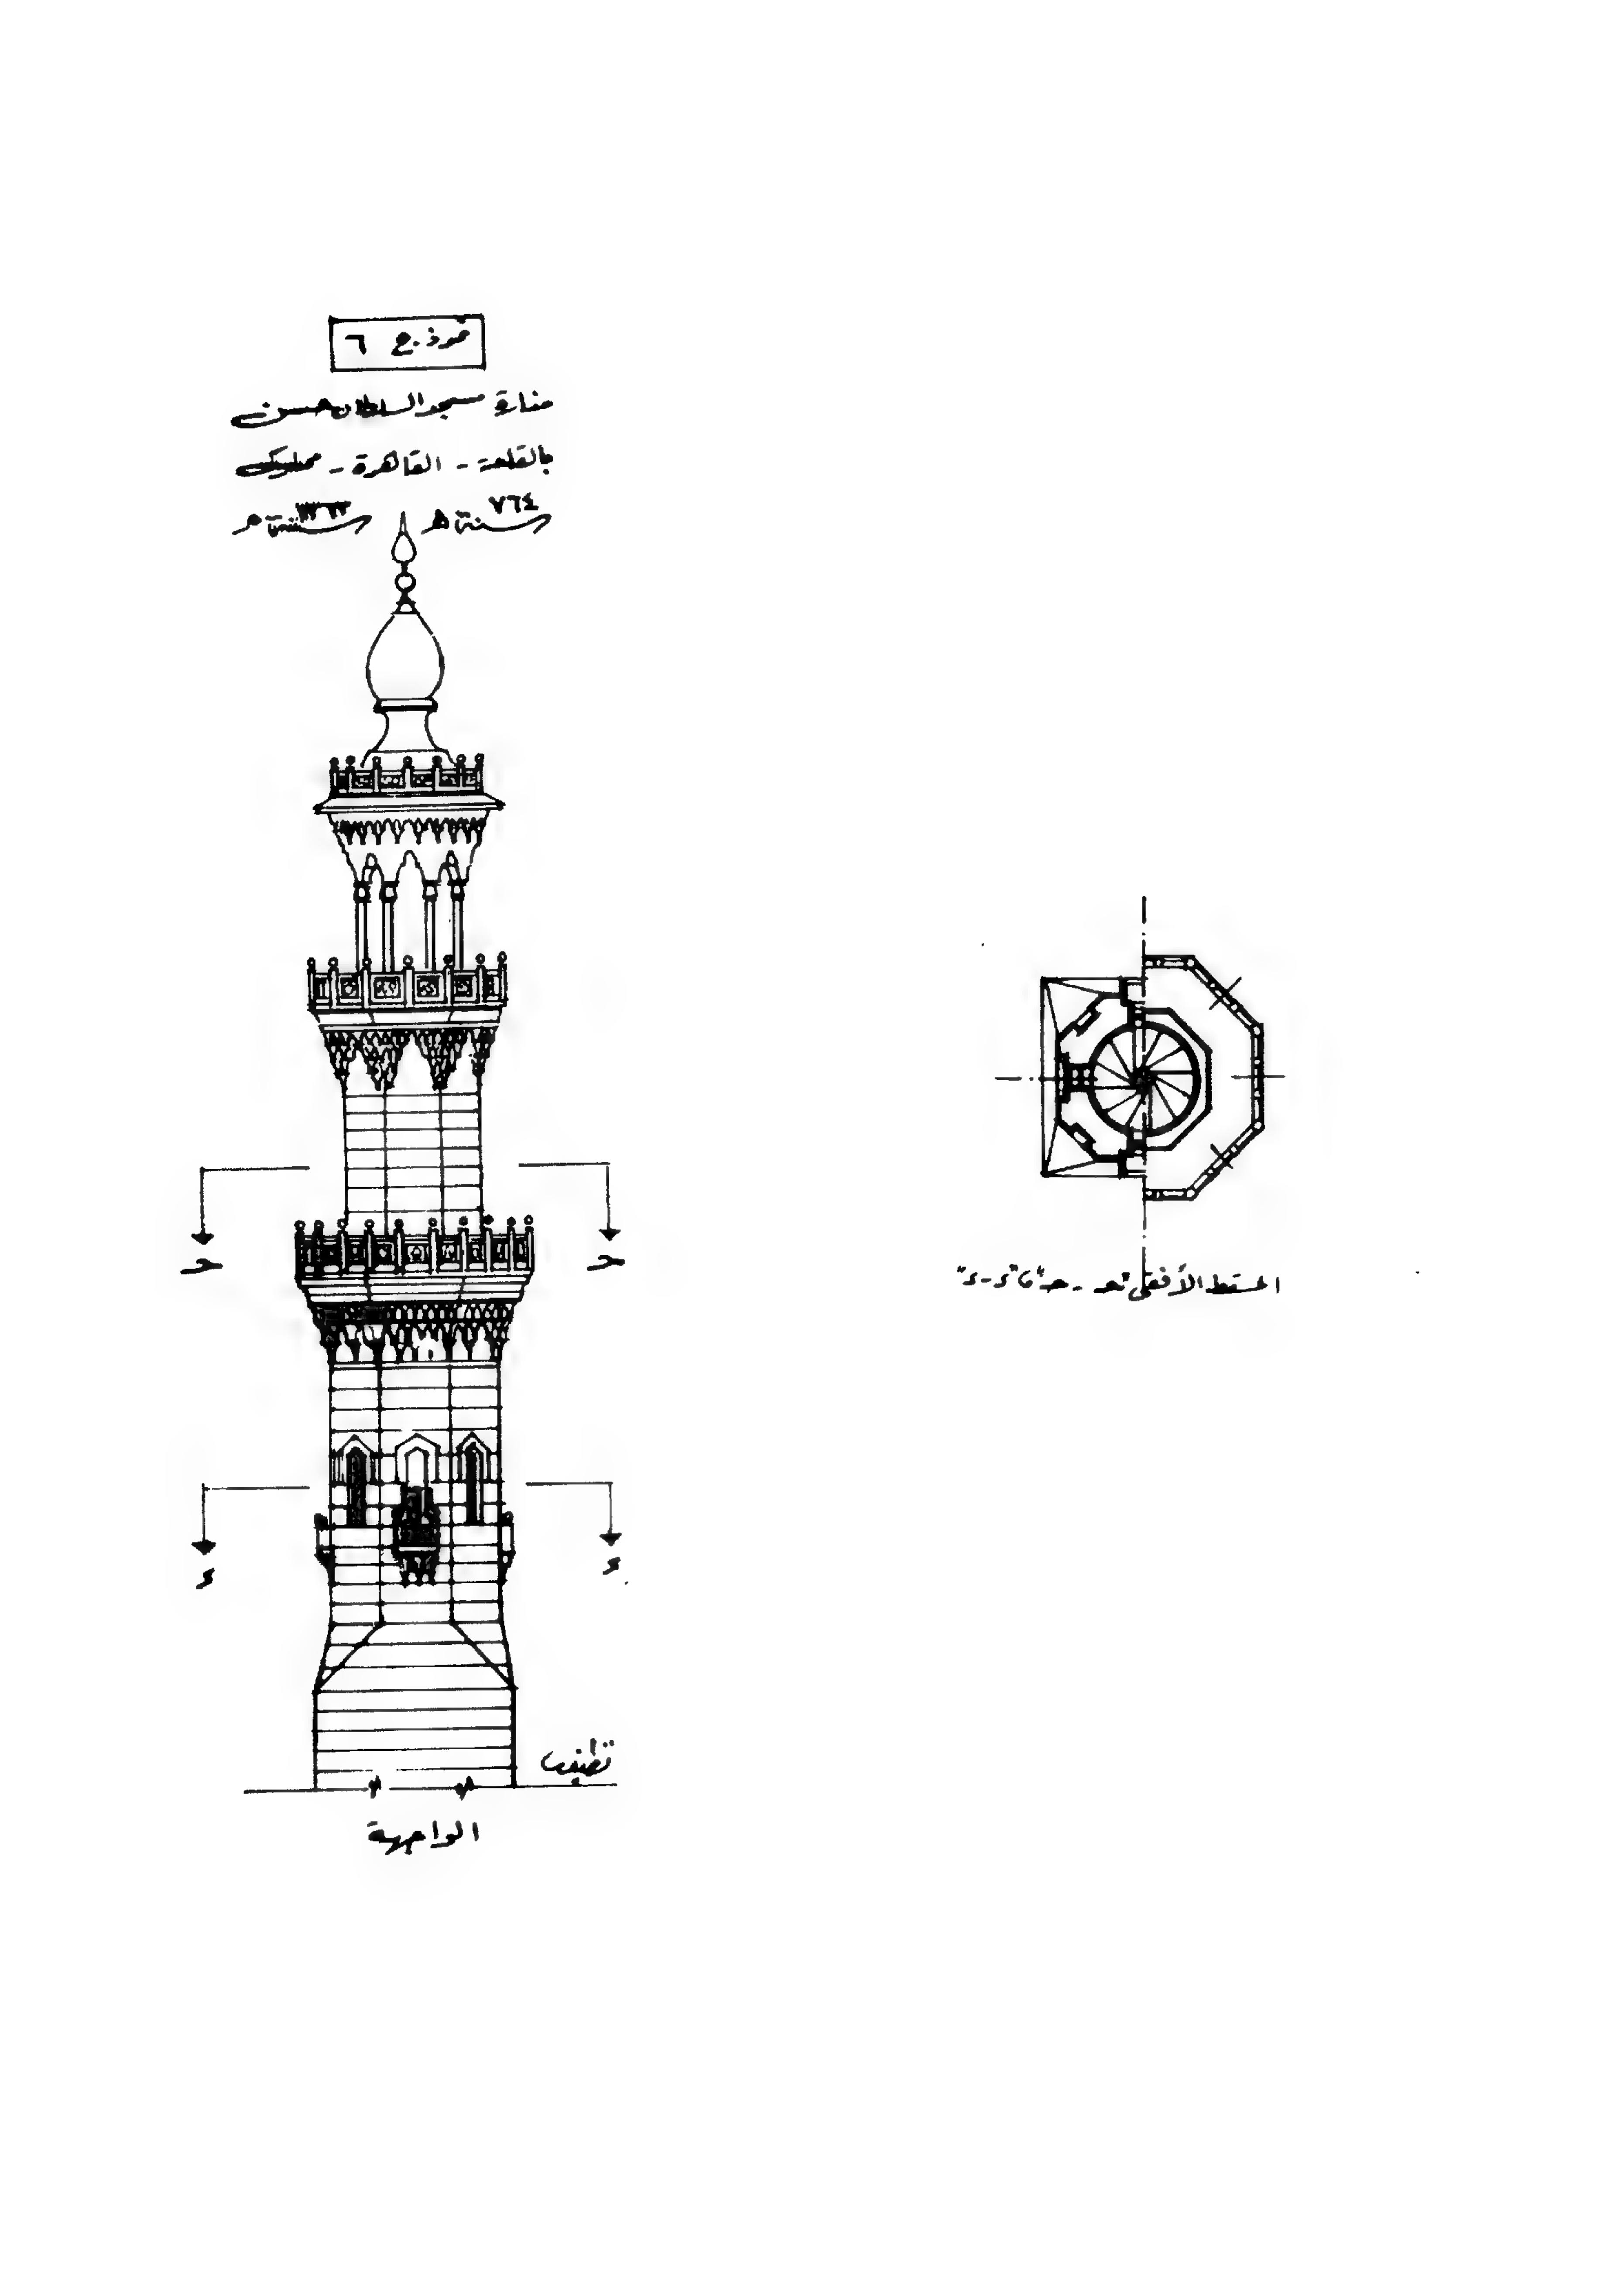 نموذج ٦
منارة مسجد السلطان حسن
بالقلعة - القاهرة - مملوكى
سنة ٧٦٤ هـ سنة ١٣٦٣ م
حـ حـ
ء ء
الواجهة
المسقط الأفقى "حـ - حـ" ، "ء - ء"